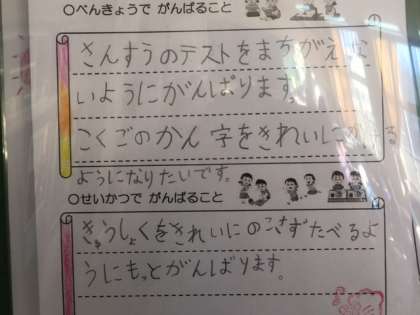 ○べんきょうで がんばること
さんすうのテストをまちがえな
いようにがんばります。
こくごのかん字をきれいに る
ようになりたいです。
○せいかつで がんばること
きゅうしょくをきれいにのこさずたべるよ
うにもっとがんばります。